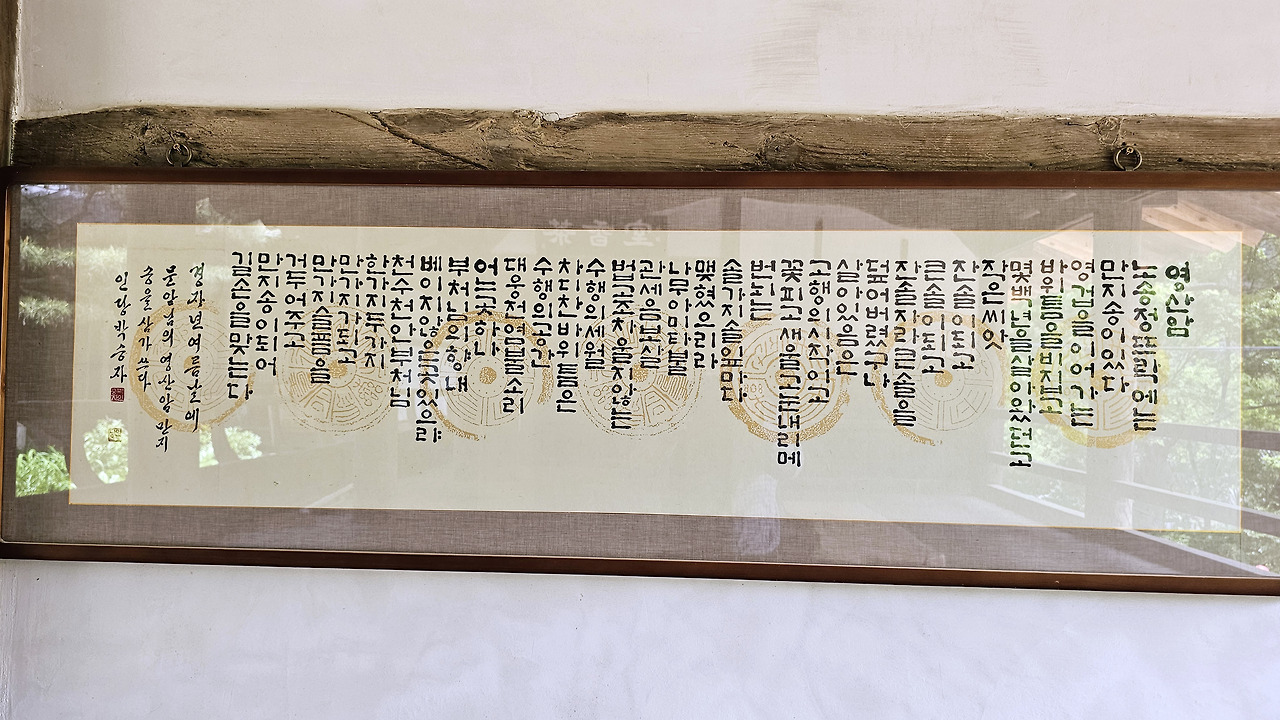 영산암
노송정뜨락에는
만지송이있다
영겁을이어가는
바위틈을비집고
몇백년을살아왔던고
작은씨앗
잔솔이되고
큰솔이되고
잔솔자라큰솔을
덮어버렸구나
살아있음은
고행의시작이고
꽃피고새울고눈내림에
번뇌는
솔가지솔잎마다
맺혔으리라
나무아미타불
관세음보살
법고조차울지않는
수행의세월
차디찬바위틈은
수행의공간
대웅전염불소리
어느곳하나
부처님의향내
베이지않은곳있으랴
천수천안부처님
한가지두가지
만가지가되고
만가지슬픔을
거두어주고
만지송이되어
길손을맞는다
경자년여름날에
문암님의영산암만지
송을삼가쓰다
인당